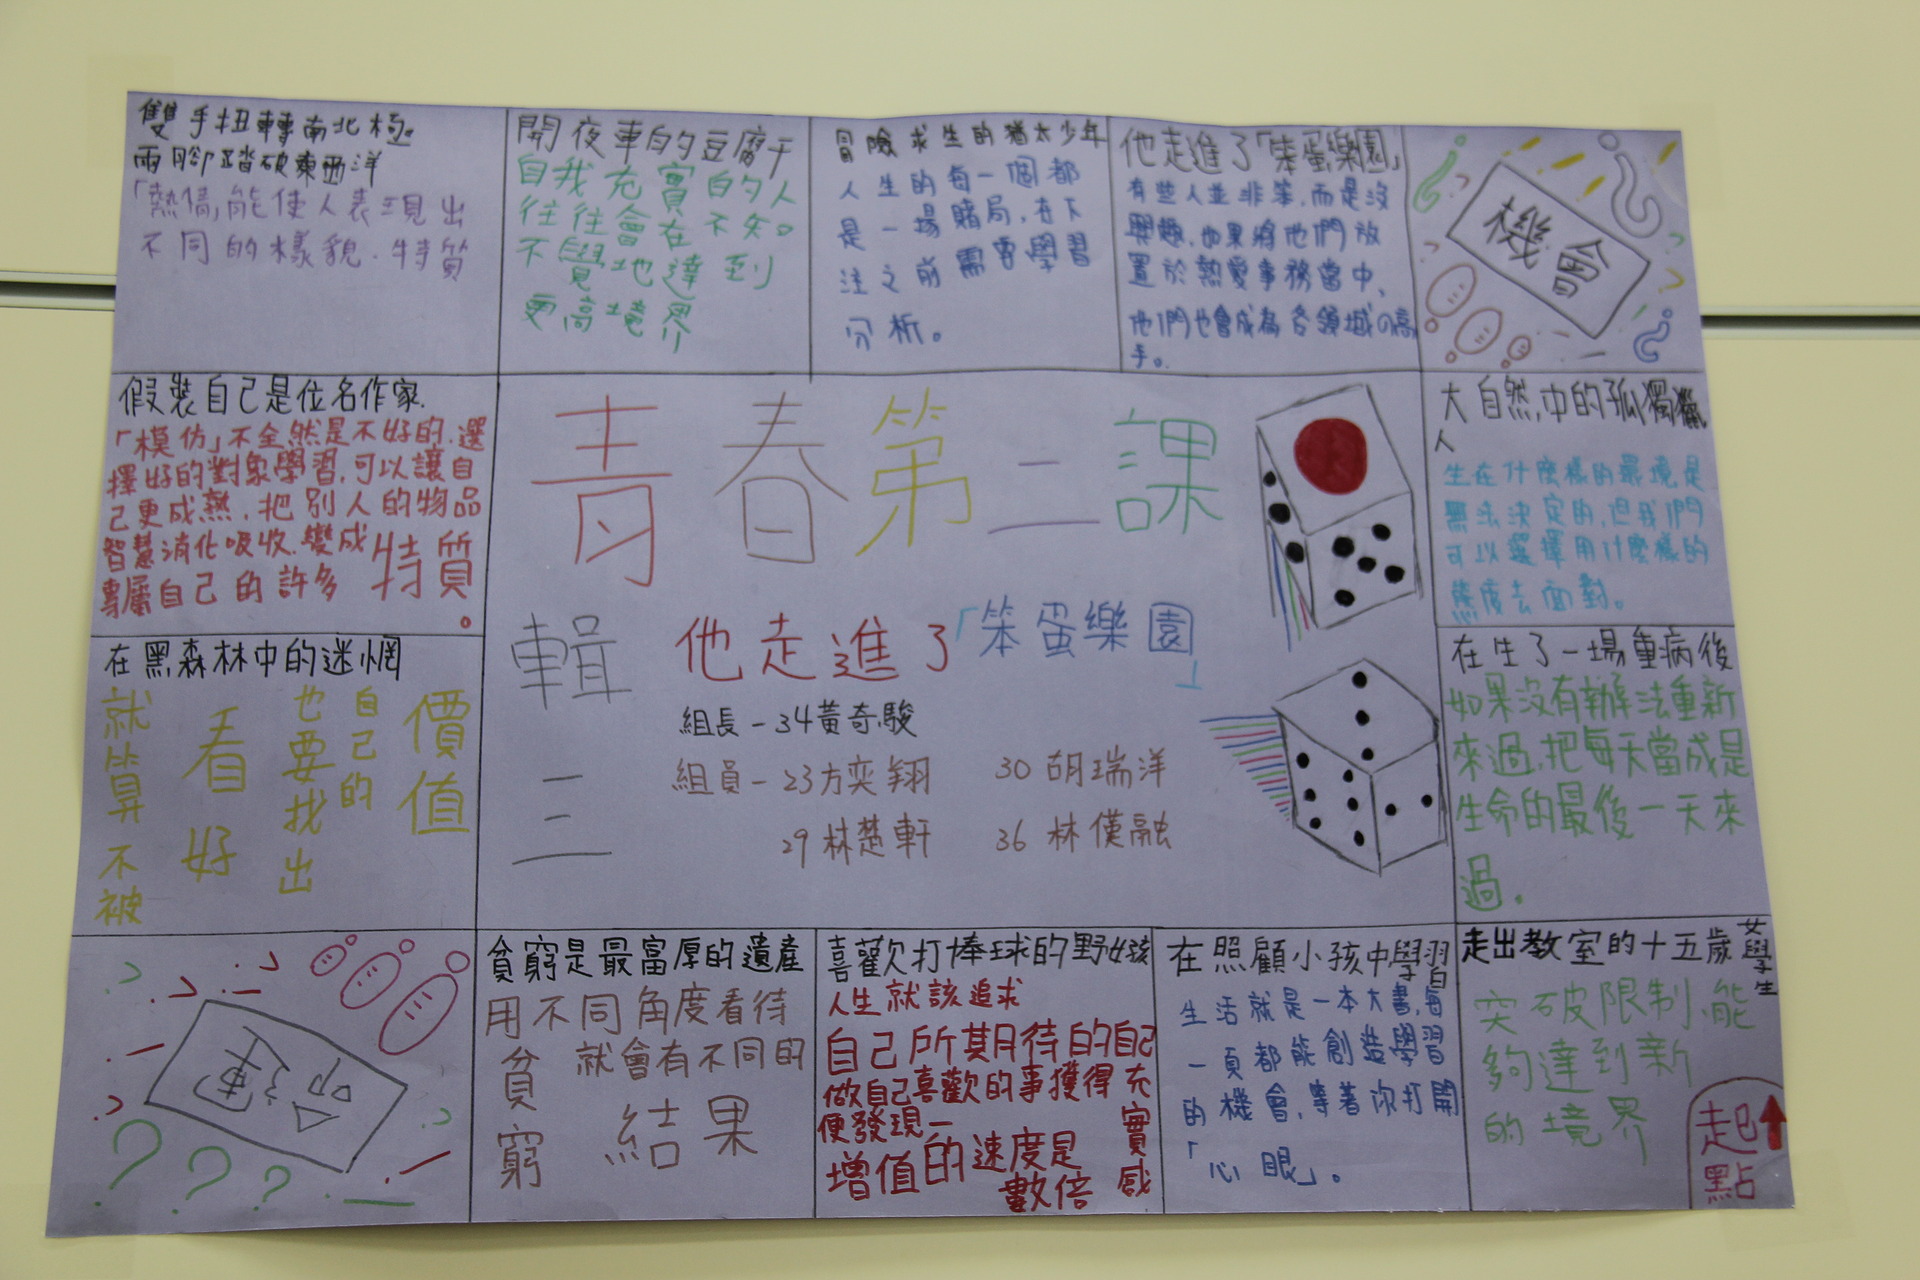 雙手扭轉南北極
兩腳踏破東西洋
「熱情」能使人表現出
不同的樣貌.特質
開夜車的豆腐干
自我充實的人
往往會在不知
不覺地達到
更高境界
冒險求生的猶太少年
人生的每一個都
是一場賭局,在下
注之前需要學習
分析。
他走進了「笨蛋樂園」
有些人並非笨,而是沒
興趣,如果將他們放
置於熱愛事務當中,
他們也會成為各領域の高
手。
機會
假裝自己是位名作家.
「模仿」不全然是不好的.選
擇好的對象學習,可以讓自
己更成熟,把別人的物品
智慧消化吸收.變成
專屬自己的許多特質。
青春第二課
輯三
他走進了「笨蛋樂園」
組長-34黃奇駿
組員-23方奕翔 30胡瑞洋
29林楚軒 36林僅融
大自然,中的孤獨獵
人
生在什麼樣的環境是
無法決定的,但我們
可以選擇用什麼樣的
態度去面對。
在黑森林中的迷惘
就算不被
看好
也要找出
自己的
價值
在生了一場重病後
如果沒有辦法重新
來過,把每天當成是
生命的最後一天來
過.
命運
貧窮是最富厚的遺產
用不同角度看待
貧窮
就會有不同的
結果
喜歡打棒球的野女孩
人生就該追求
自己所期待的自己
做自己喜歡的事獲得充實感
便發現一
增值的速度是
數倍
在照顧小孩中學習
生活就是一本大書,每
一頁都能創造學習
的機會,等著你打開
「心眼」。
走出教室的十五歲女學生
突破限制,能
夠達到新
的境界
起點